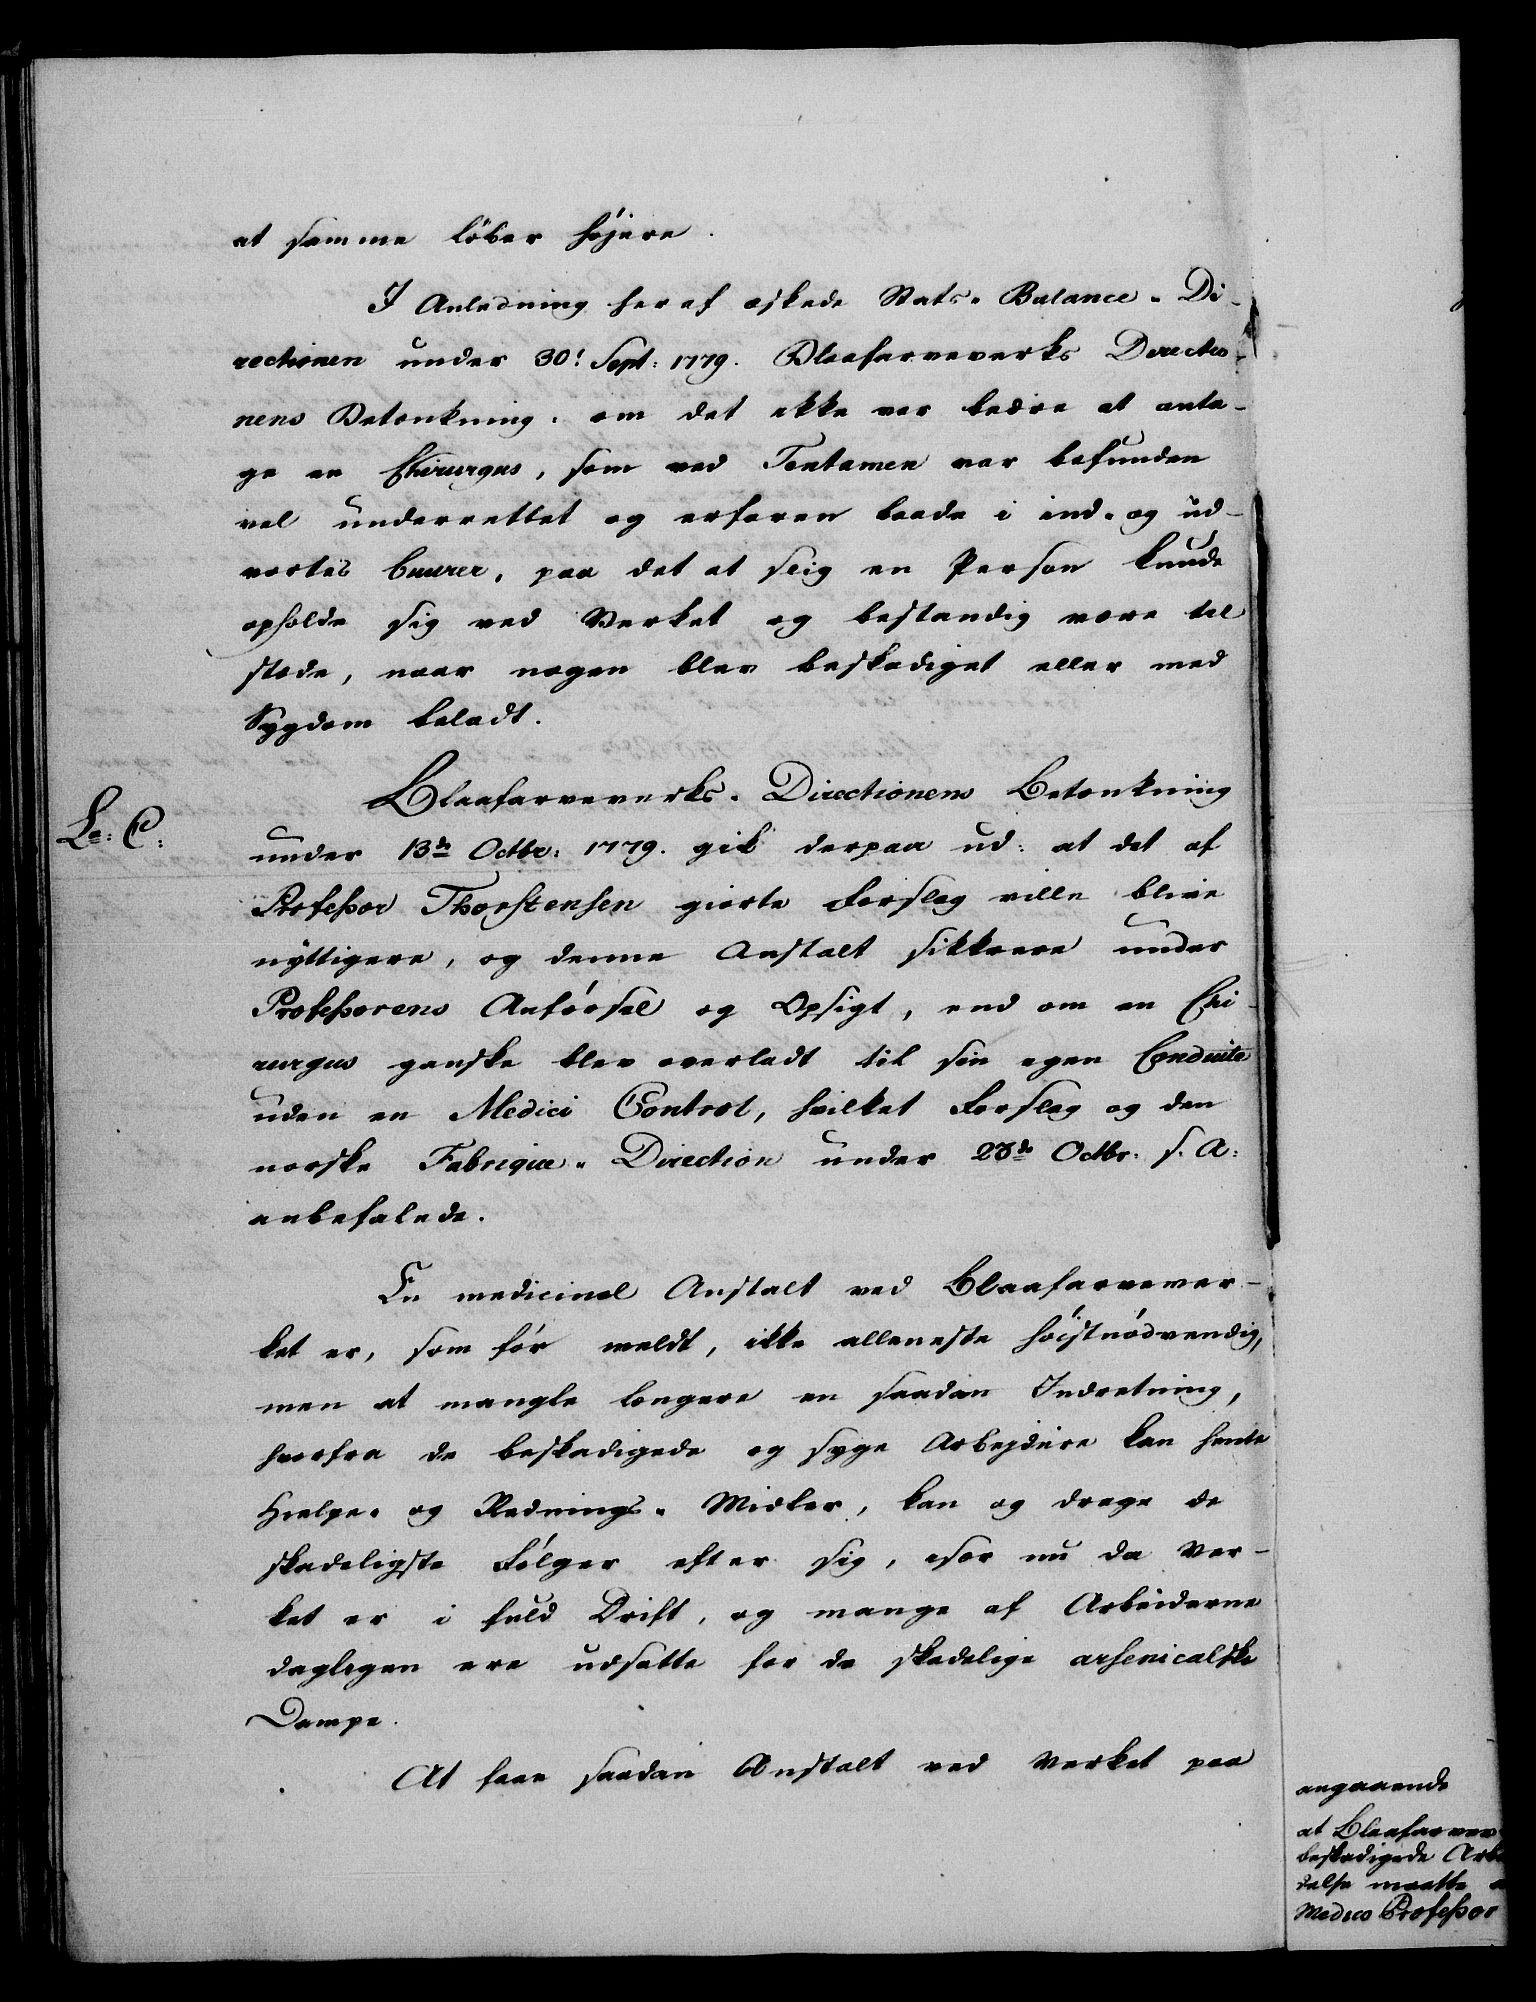 at samme løber højere.
I Anledning heraf æskede Stats-Balance-Di-
rectionen under 30! Sept: 1779. Blaafarveverks Directio-
nens Betænkning, om det ikke var bedre at anta-
ge en Chirurgus, som ved Tentamen var befunden
vel underrettet og erfaren baade i ind- og ud-
vortes Cuurer, paa det at slig en Person kunde
opholde sig ved Verket og bestandig være til
stæde, naar nogen blev beskadiget eller med
Sygdom beladt.
Blaafarveverks-Directionens Betænkning
La: C:
under 13de Octbr: 1779. gik derpaa ud: at det af
Professor Thorstensen giorte Forslag ville blive
nyttigere, og denne Anstalt sikkrere under
Professorens Anførsel og Opsigt, end om en Chi-
rurgus ganske blev overladt til sin egen Conduite
uden en Medici Control, hvilket Forslag og den
norske Fabrique-Direction under 23de Octbr. s. A:
anbefalede.
En medicinal Anstalt ved Blaafarvever-
ket er, som før meldt, ikke alleneste høistnødvendig,
men at mangle længere en saadan Indretning,
hvorfra de beskadigede og syge Arbejdere kan hente
Hielpe- og Rednings-Midler, kan og drage de
skadeligste Følger efter sig, især nu da Ver-
ket er i fuld Drift, og mange af Arbeiderne
dagligen ere udsatte for de skadelige arsenicalske
Dampe.
At faae saadan Anstalt ved Verket paa
angaaende
at Blaafarvev
beskadigede Arbe
delse maatte
Medico Professor